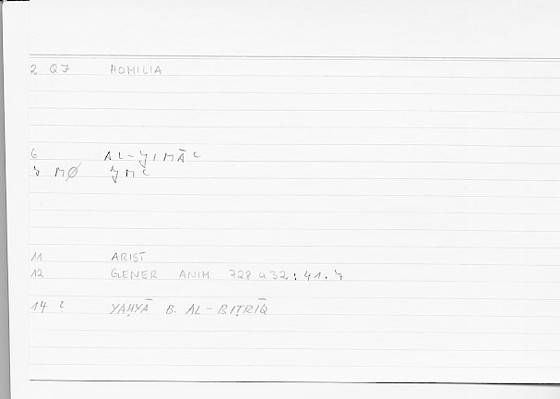 2 Q7 HOMILIA
6 AL-ǦIMĀʿ
7 MØ ǦMʿ
11 ARIST
12 GENER ANIM 728 a 32 : 41.7
14 2 YAḤYĀ B. AL-BIṬRĪQ